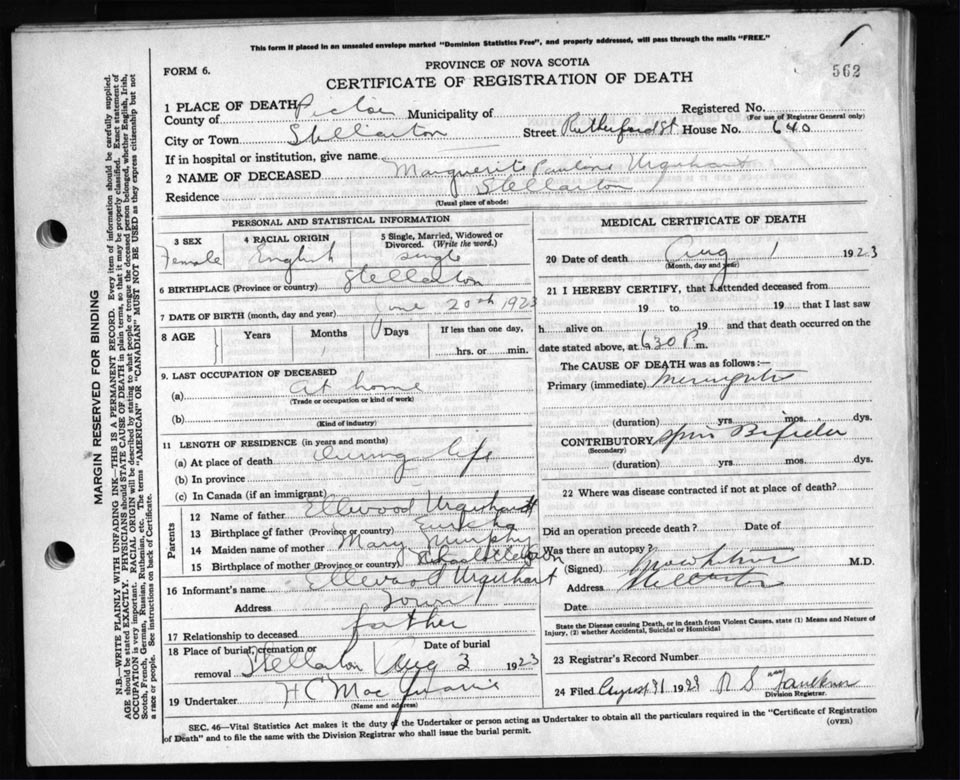 This form if placed in an unsealed envelope marked "Dominion Statistics Free", and properly addressed, will pass through the mails "FREE."
562
FORM 6.
PROVINCE OF NOVA SCOTIA
CERTIFICATE OF REGISTRATION OF DEATH
1 PLACE OF DEATH
County of Pictou Municipality of Registered No.
(For use of Registrar General only)
City or Town Stellarton Street Rutherford St House No. 640
If in hospital or institution, give name
2 NAME OF DECEASED Marguerite Pauline Urquhart
Residence Stellarton
(Usual place of abode)
PERSONAL AND STATISTICAL INFORMATION
3 SEX 4 RACIAL ORIGIN 5 Single, Married, Widowed or Divorced. (Write the word.)
Female English single
6 BIRTHPLACE (Province or country) Stellarton
7 DATE OF BIRTH (month, day and year) June 20th 1923
8 AGE Years Months Days If less than one day,
1 hrs. or min.
9. LAST OCCUPATION OF DECEASED
(a) At home
(Trade or occupation or kind of work)
(b)
(Kind of industry)
11 LENGTH OF RESIDENCE (in years and months)
(a) At place of death During life
(b) In province
(c) In Canada (if an immigrant)
Parents
12 Name of father Ellwood Urquhart
13 Birthplace of father (Province or country) Eureka
14 Maiden name of mother Mary Murphy
15 Birthplace of mother (Province or country)
16 Informant's name Ellwood Urquhart
Address Town
17 Relationship to deceased father
18 Place of burial, cremation or removal Stellarton Date of burial Aug 3 1923
19 Undertaker H C Mac Quarrie
(Name and address)
MEDICAL CERTIFICATE OF DEATH
20 Date of death Aug 1 1923
(Month, day and year)
21 I HEREBY CERTIFY, that I attended deceased from
19 to 19 that I last saw
h alive on 19 and that death occurred on the
date stated above, at 630 P m.
The CAUSE OF DEATH was as follows:—
Primary (immediate) Meningitis
(duration) yrs. mos. dys.
CONTRIBUTORY Spina Bifida
(Secondary)
(duration) yrs. mos. dys.
22 Where was disease contracted if not at place of death?
Did an operation precede death? Date of
Was there an autopsy?
(Signed) M.D.
Address Stellarton
Date
State the Disease causing Death, or in death from Violent Causes, state (1) Means and Nature of Injury, (2) whether Accidental, Suicidal or Homicidal
23 Registrar's Record Number
24 Filed August 31 1923 R S Faulkner
Division Registrar.
SEC. 46—Vital Statistics Act makes it the duty of the Undertaker or person acting as Undertaker to obtain all the particulars required in the "Certificate of Registration
of Death" and to file the same with the Division Registrar who shall issue the burial permit.
(OVER)
MARGIN RESERVED FOR BINDING
N.B.—WRITE PLAINLY WITH UNFADING INK—THIS IS A PERMANENT RECORD. Every item of information should be carefully supplied.
AGE should be stated EXACTLY. PHYSICIANS should STATE CAUSE OF DEATH in plain terms, so that it may be properly classified. Exact statement of
OCCUPATION is very important. RACIAL ORIGIN will be described by stating to what people or tongue the deceased person belonged, whether English, Irish,
Scotch, French, German, Russian, Ruthenian, etc. The terms "AMERICAN" OR "CANADIAN" MUST NOT BE USED as they express citizenship but not
a race or people. See instructions on back of Certificate.